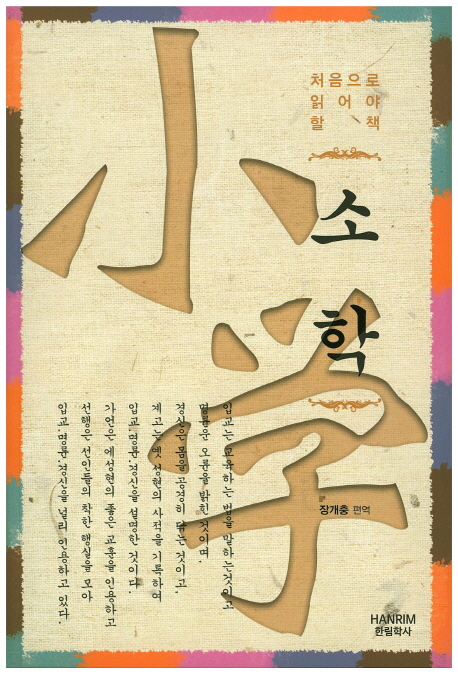 小学
처음으로
읽어야
할 책
소학
입교는 교육하는 법을 말하는것이고
명륜은 오륜을 밝힌 것이며,
경신은 몸을 공경히 닦는 것이고,
계고는 옛 성현의 사적을 기록하여
입교,명륜,경신을 설명한 것이다.
가언은 예성현의 좋은 교훈을 인용하고
선행은 선인들의 착한 행실을 모아
입교,명륜,경신을 널리 인용하고 있다.
장개충 편역
HANRIM
한림학사